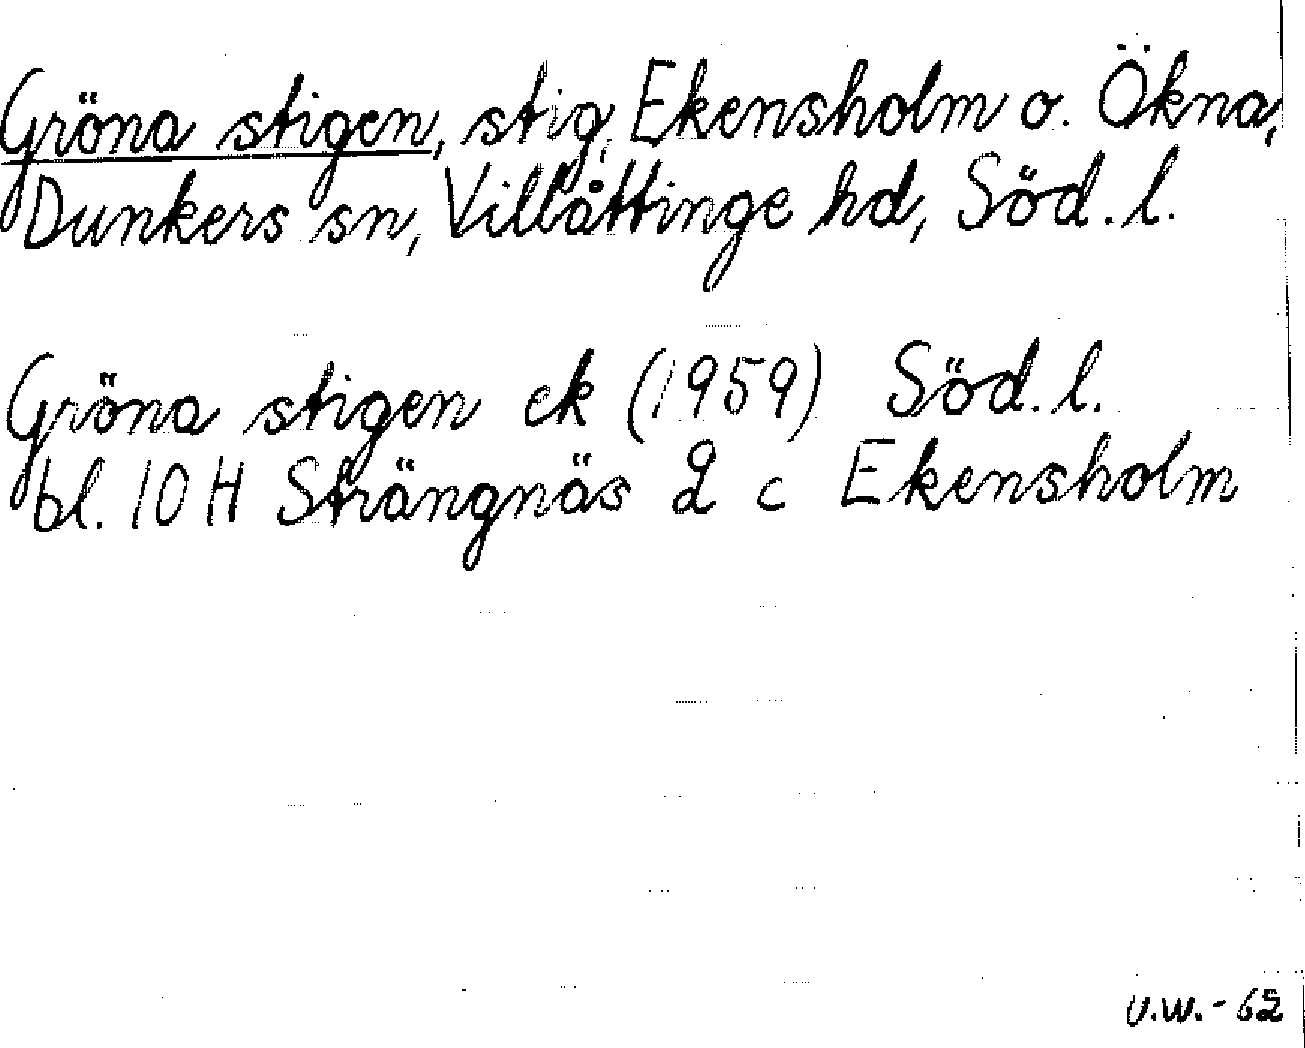 Gröna stigen, stig, Ekensholm o. Ökna,
Dunkers sn, Villåttinge hd, Söd. l.
Gröna stigen ek (1959) Söd. l.
bl. 10 H Strängnäs 2 c Ekensholm
U.W. - 62